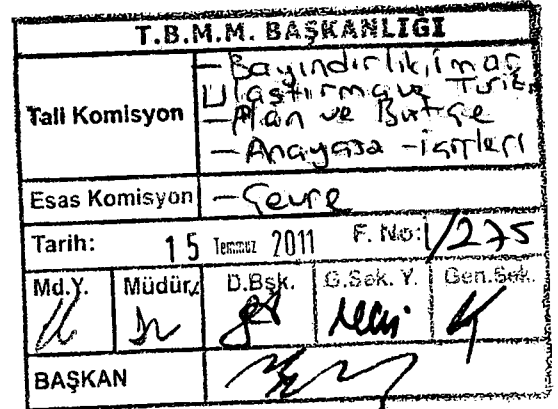 T.B.M.M. BAŞKANLIĞI
Tali Komisyon
- Bayındırlık, imar
Ulaştırma ve Turizm
- Plan ve Bütçe
- Anayasa - içişleri
Esas Komisyon
- Çevre
Tarih: 15 Temmuz 2011 F. No: 1/275
Md.Y. Müdür D.Bşk. G.Sek. Y. Gen.Sek.
BAŞKAN